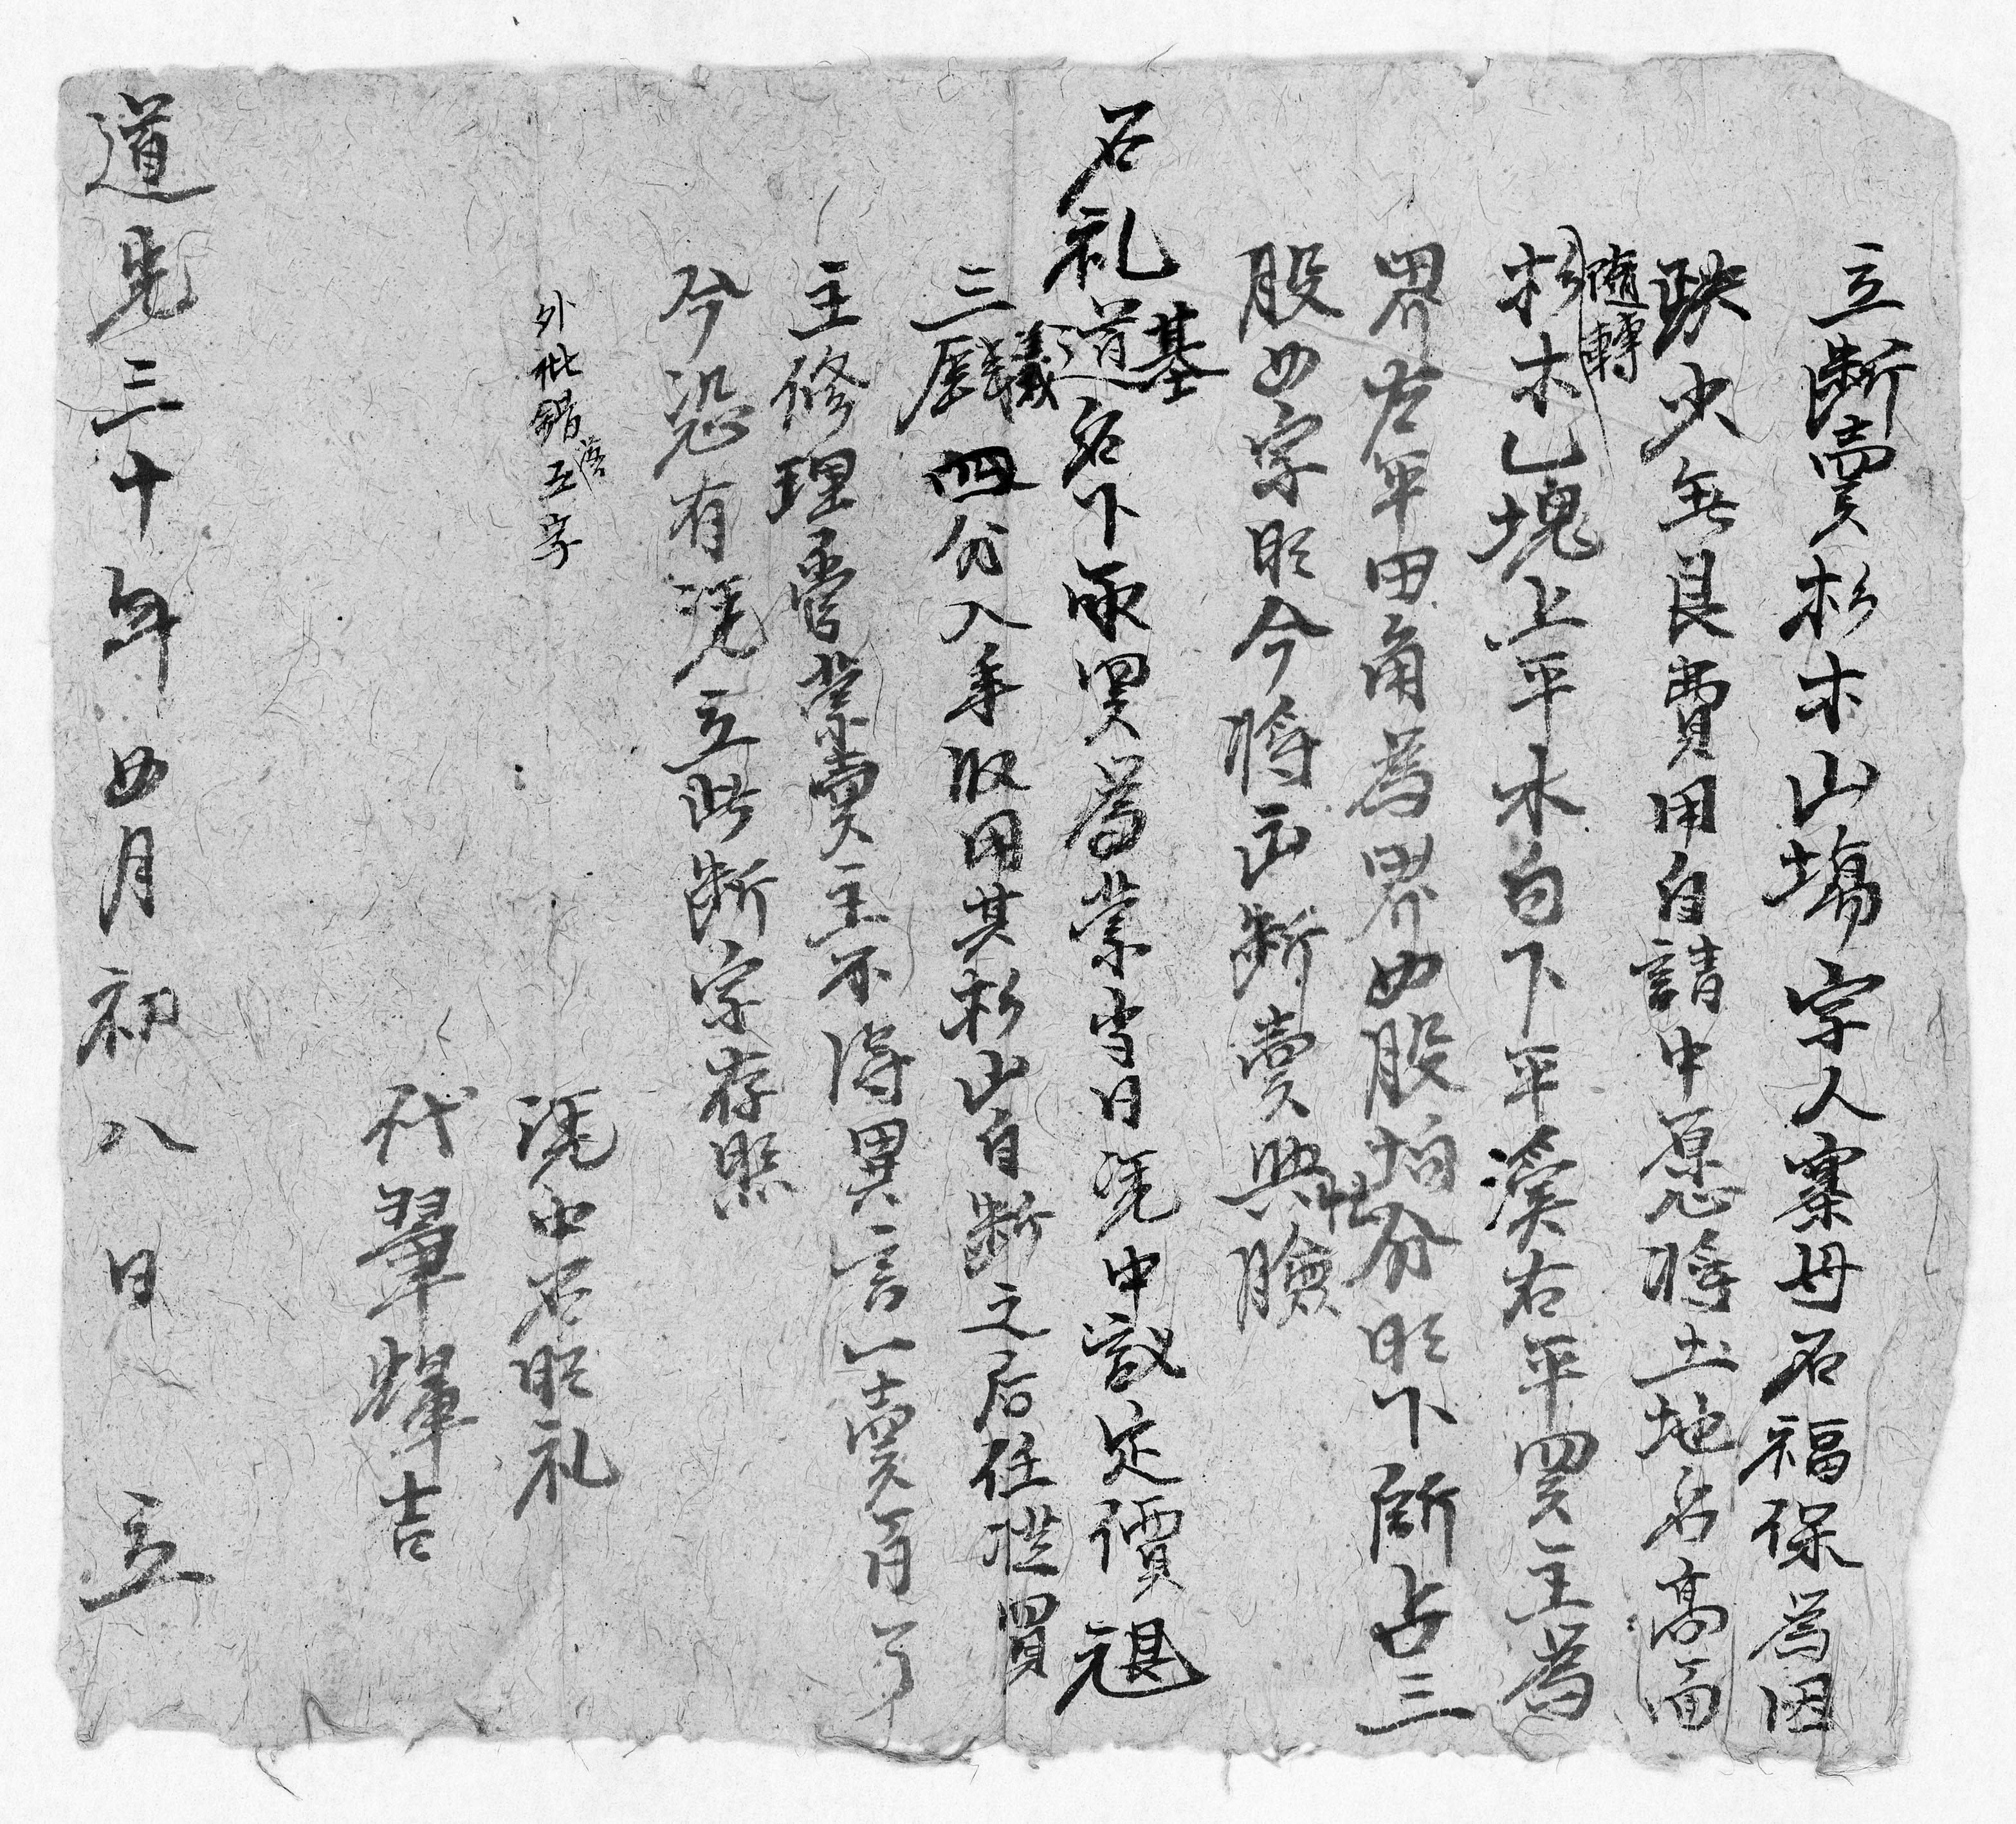 立断賣杉木山塲字人寨母石福保為因
缺少無艮費用自請中愿將土地名高面
隨轉
杉木乙塊上平水勾下平溪右平買主為
界左平田角為界四股均分昭下所占三
股四字昭今將出断賣與臉
石礼道名下承買為業当日凭中議定價
基
三 四分入手收用其杉山自断之后任從買
議
主修理管業賣主不得異言一賣百了
今恐有凭立此断字存照
外批錯五字
落
凭中石昭礼
代筆輝吉
道光三十年四月初八日 立